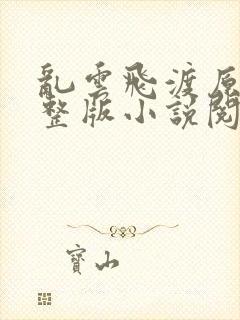 亂雲飛渡原
整版小說閱
寶山